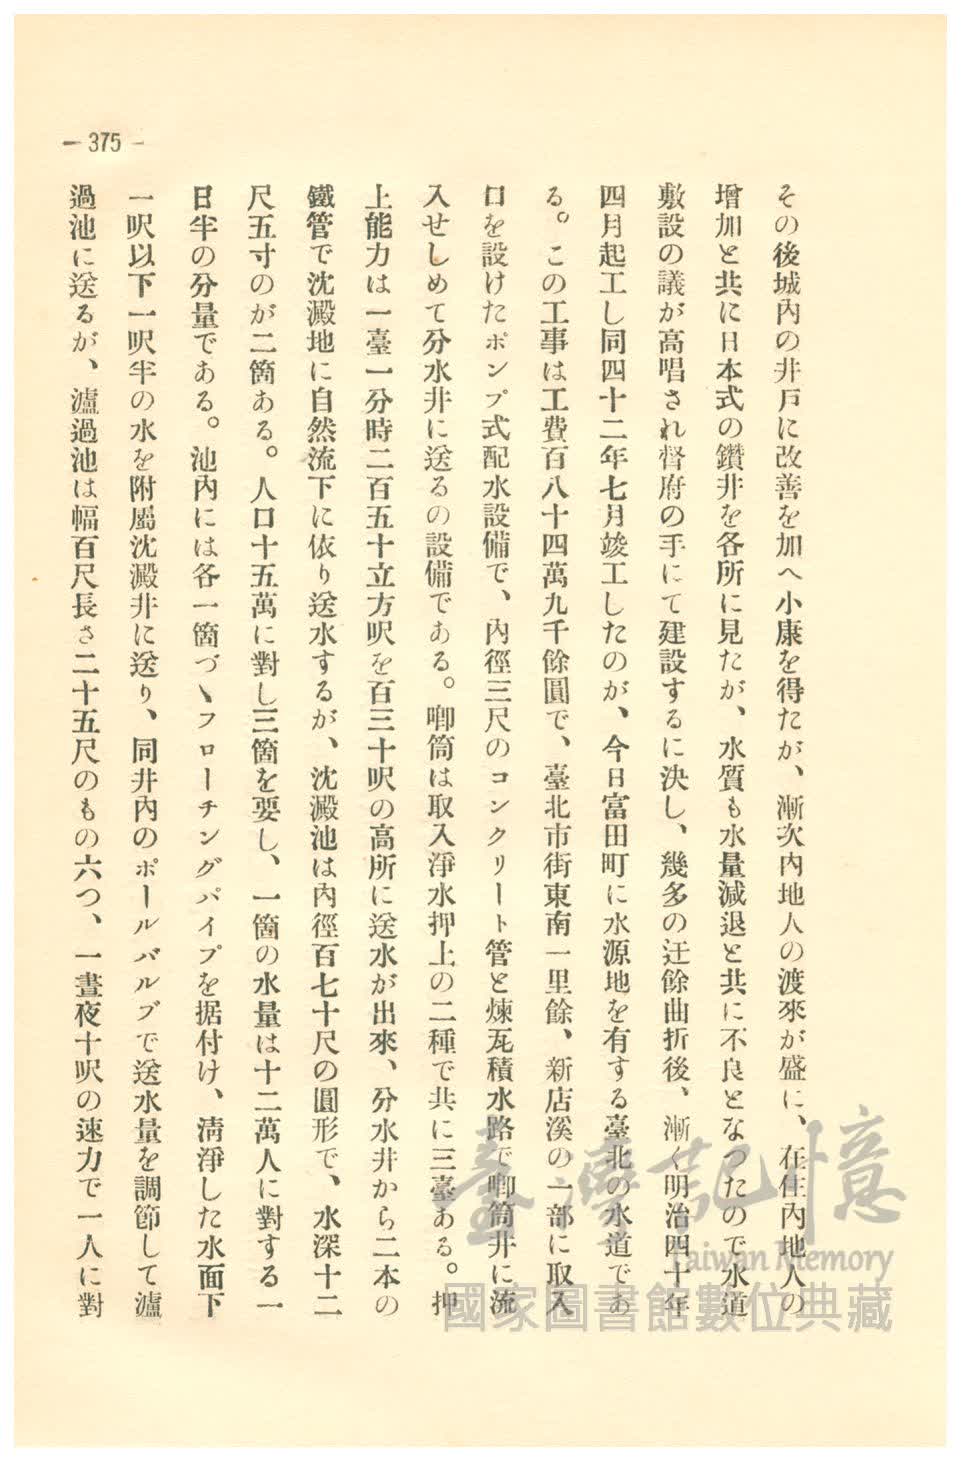 — 375 —
その後城內の井戶に改善を加へ小康を得たが、漸次內地人の渡來が盛に、在住內地人の
增加と共に日本式の鑽井を各所に見たが、水質も水量減退と共に不良となつたので水道
敷設の議が高唱され督府の手にて建設するに決し、幾多の迂餘曲折後、漸く明治四十年
四月起工し同四十二年七月竣工したのが、今日富田町に水源地を有する臺北の水道であ
る。この工事は工費百八十四萬九千餘圓で、臺北市街東南一里餘、新店溪の一部に取入
口を設けたポンプ式配水設備で、內徑三尺のコンクリート管と煉瓦積水路で喞筒井に流
入せしめて分水井に送るの設備である。喞筒は取入淨水押上の二種で共に三臺ある。押
上能力は一臺一分時二百五十立方呎を百三十呎の高所に送水が出來、分水井から二本の
鐵管で沈澱地に自然流下に依り送水するが、沈澱池は內徑百七十尺の圓形で、水深十二
尺五寸のが二箇ある。人口十五萬に對し三箇を要し、一箇の水量は十二萬人に對する一
日半の分量である。池內には各一箇づゝフローチングパイプを据付け、淸淨した水面下
一呎以下一呎半の水を附屬沈澱井に送り、同井內のボールバルブで送水量を調節して瀘
過池に送るが、瀘過池は幅百尺長さ二十五尺のもの六つ、一晝夜十呎の速力で一人に對
臺灣記憶
Taiwan Memory
國家圖書館數位典藏